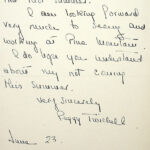 I am looking forward
very much to seeing and
working at Pine Mountain.
I do hope you understand
about my not coming
this summer.
Very sincerely
Peggy
June 23.